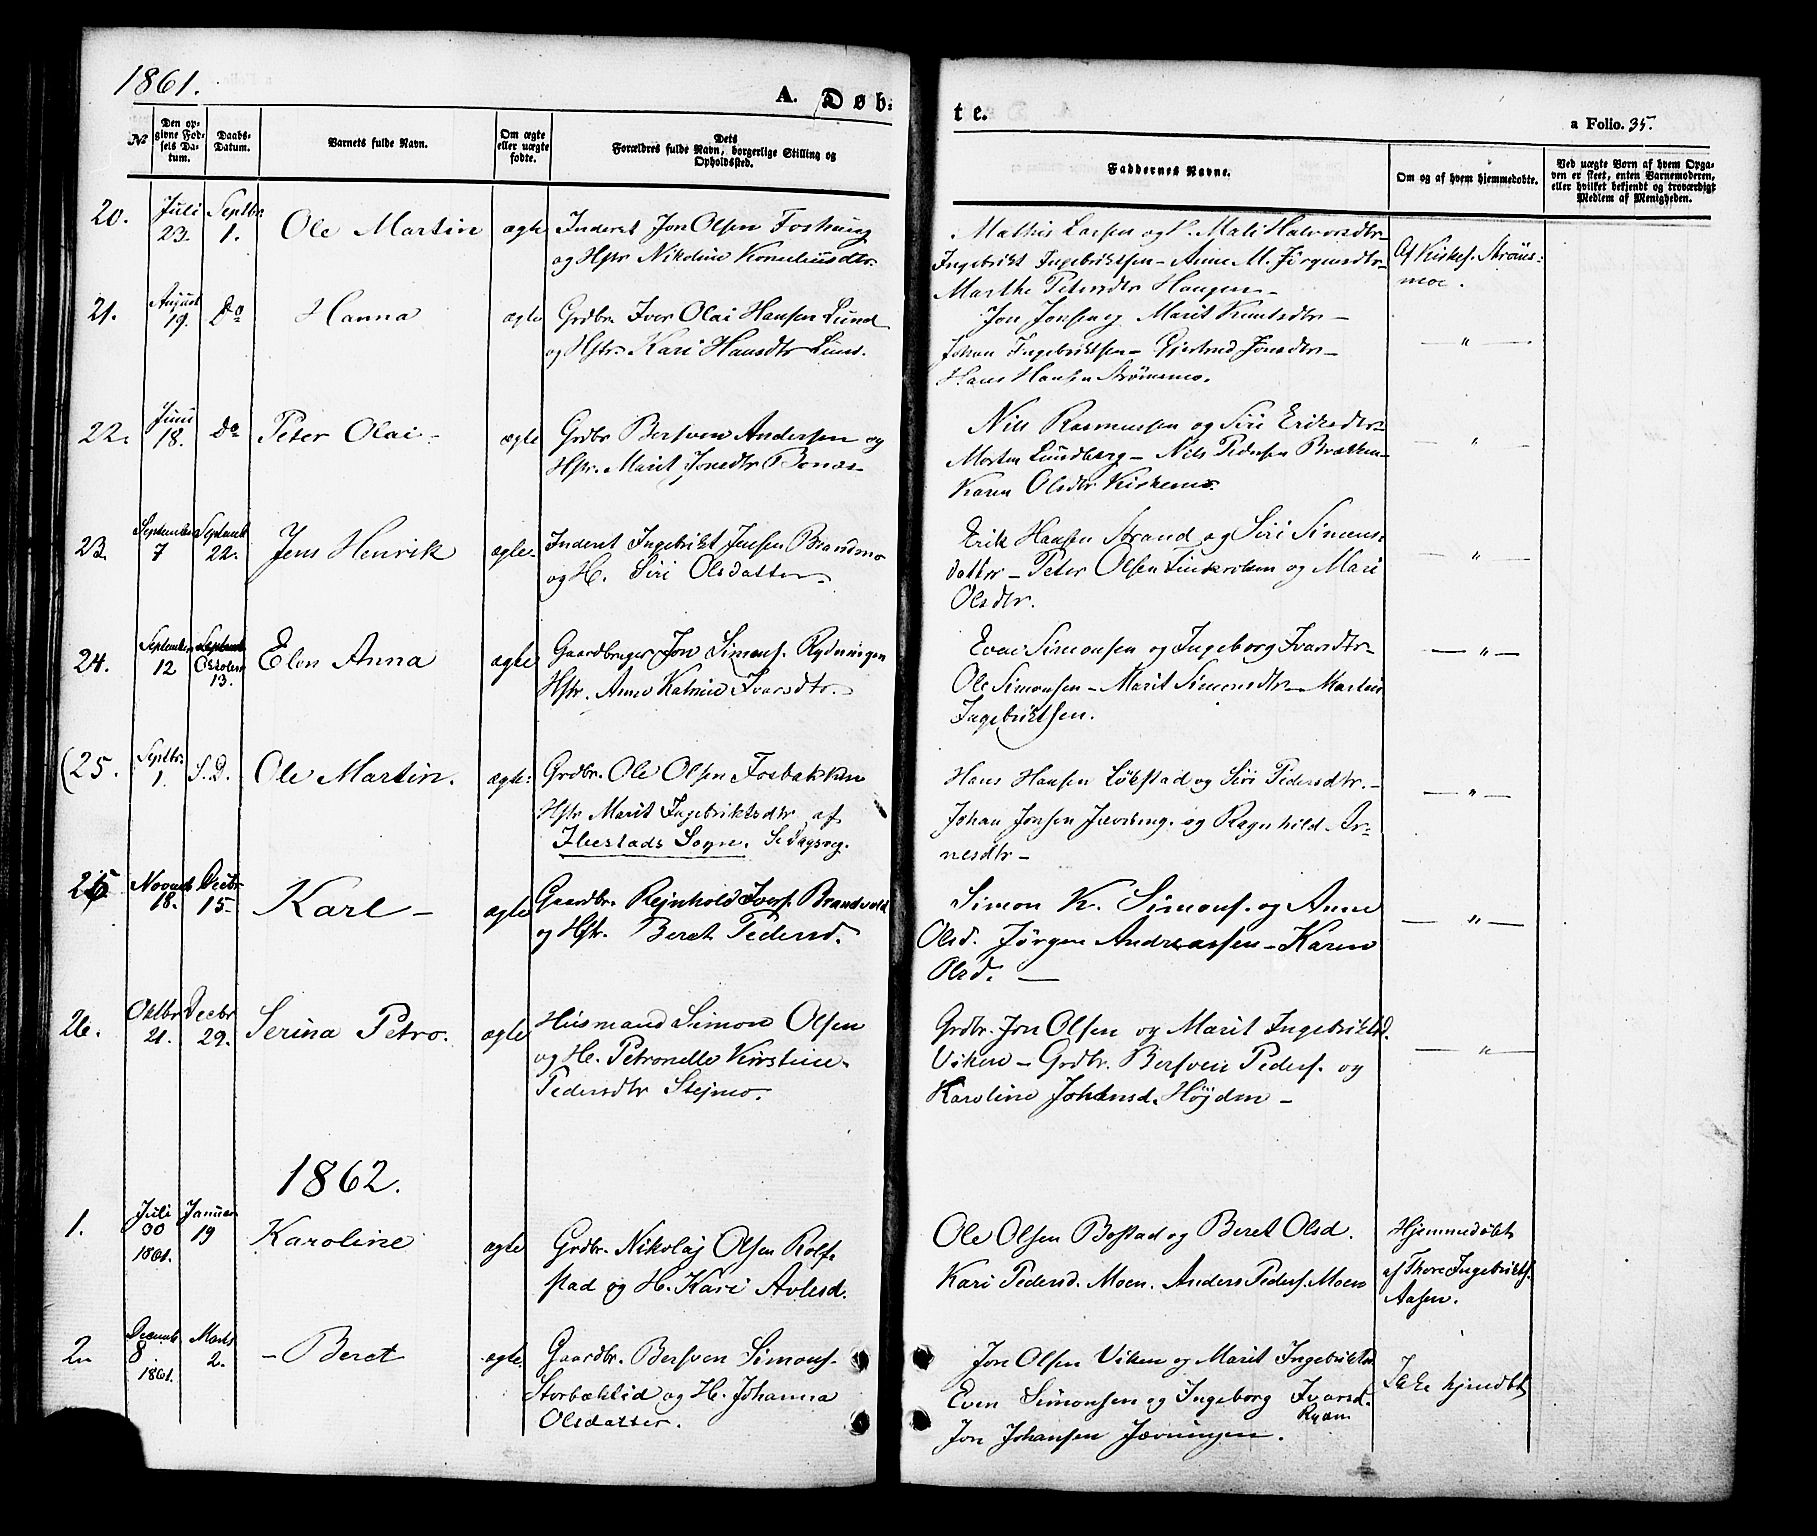 1861.
A. Døb-
te.
a Folio. 35.
№
Den op-
givne Fød-
sels Da-
tum.
Daabs-
Datum.
Barnets fulde Navn.
Om ægte
eller uægte
fødte.
Dets
Forældres fulde Navn, borgerlige Stilling og
Opholdssted.
Faddernes Navne.
Om og af hvem hjemmedøbte.
Ved uægte Børn af hvem Opga-
ven er skeet, enten Barnemoderen,
eller hvilket bekjendt og troværdigt
Medlem af Menigheden.
20.
Juli
23.
Septbr
1.
Ole Martin
ægte
Inderst Jon Olsen
og Hstr Nikoline Korneliusdtr.
Mathis Larsen og Mali Halvorsdtr
Ingebrikt Ingebriktsen - Anne M. Jörgensdtr
Marthe Petersdtr Haugen -
Af Kirkes. Ströms-
moe.
21.
August
19.
Do
Hanna
ægte
Grdbr. Iver Olai Hansen Lund
og Hstr. Kari Hansdtr Lund.
Jon Jonsen og Marit Knutsdtr -
Johan Ingebriktsen - Gjertrud Jonsdtr -
Hans Hansen Strömsmo.
— " —
22.
Juni
18.
Do
Peter Olai -
ægte
Grdbr Bersven Andersen og
Hstr. Marit Jonsdtr Bonæs
Nils Rasmussen og Siri Eriksdtr
Morten Lundberg - Nils Pedersen Brækken
Karen Olsdtr Kirkemo.
— " —
23.
September
7
Septemb
22.
Jens Henrik
ægte
Inderst Ingebrikt Jensen Brandmo
og H. Siri Olsdatter
Erik Hansen Strand og Siri Simons-
datter - Peter Olsen og Mari
Olsdtr.
— " —
24.
September
12
Septemb
October
13.
Elen Anna
ægte
Gaardbruger Jon Simons. Rydningen
Hstr. Anne Katrine Ivarsdtr.
Even Simonsen og Ingeborg Ivarsdtr
Ole Simonsen - Marit Simonsdtr - Martin
Ingebriktsen.
— " —
(25.
Septbr.
1.
S.D.
Ole Martin.
ægte:
Grdbr. Ole Olsen Fosbakken
Hstr Marit Ingebriktsdtr af
Ibestads Sogn. Se Dagsreg.
Hans Hansen Løkstad og Siri Pedersdtr. -
Johan Jonsen Jævrberg. og Ragnhild Ar-
nesdtr -
— " —
25
Novemb
18.
Decbr
15
Karl -
ægte
Gaardbr. Rejnhold Ivers. Brandvold
og Hstr. Beret Pedersd.
Simon K. Simons. og Anne
Olsd. Jørgen Andreassen - Karen
Olsd. —
— " —
26.
Oktbr
21.
Decbr
29.
Serina Petro.
ægte
Husmand Simon Olsen
og H. Petronelle Kirstine
Pedersdtr Stejmo.
Grdbr. Jon Olsen og Marit Ingebriktsd.
Viken - Grdbr. Bersven Peders. og
Karoline Johansd. Højden -
— " —
1862.
1.
Juli
30
1861.
Januar
19
Karoline
ægte
Grdbr. Nikolaj Olsen Rolf-
stad og H. Kari Avlesd.
Ole Olsen Bostad og Beret Olsd.
Kari Pedersd. Moen. Anders Peders. Moen
Hjemmedøbt
af Thore Ingebrikts.
Aasen.
2.
Decemb
8
1861.
Marts
2.
- Beret
ægte.
Gaardbr. Bersven Simons.
Storbæklid og H. Johanna
Olsdatter.
Jon Olsen Viken og Marit Ingebriktsd
Even Simonsen og Ingeborg Ivarsd.
Rydn
Jon Johansen Jævningen.
Ikke hjmdbt